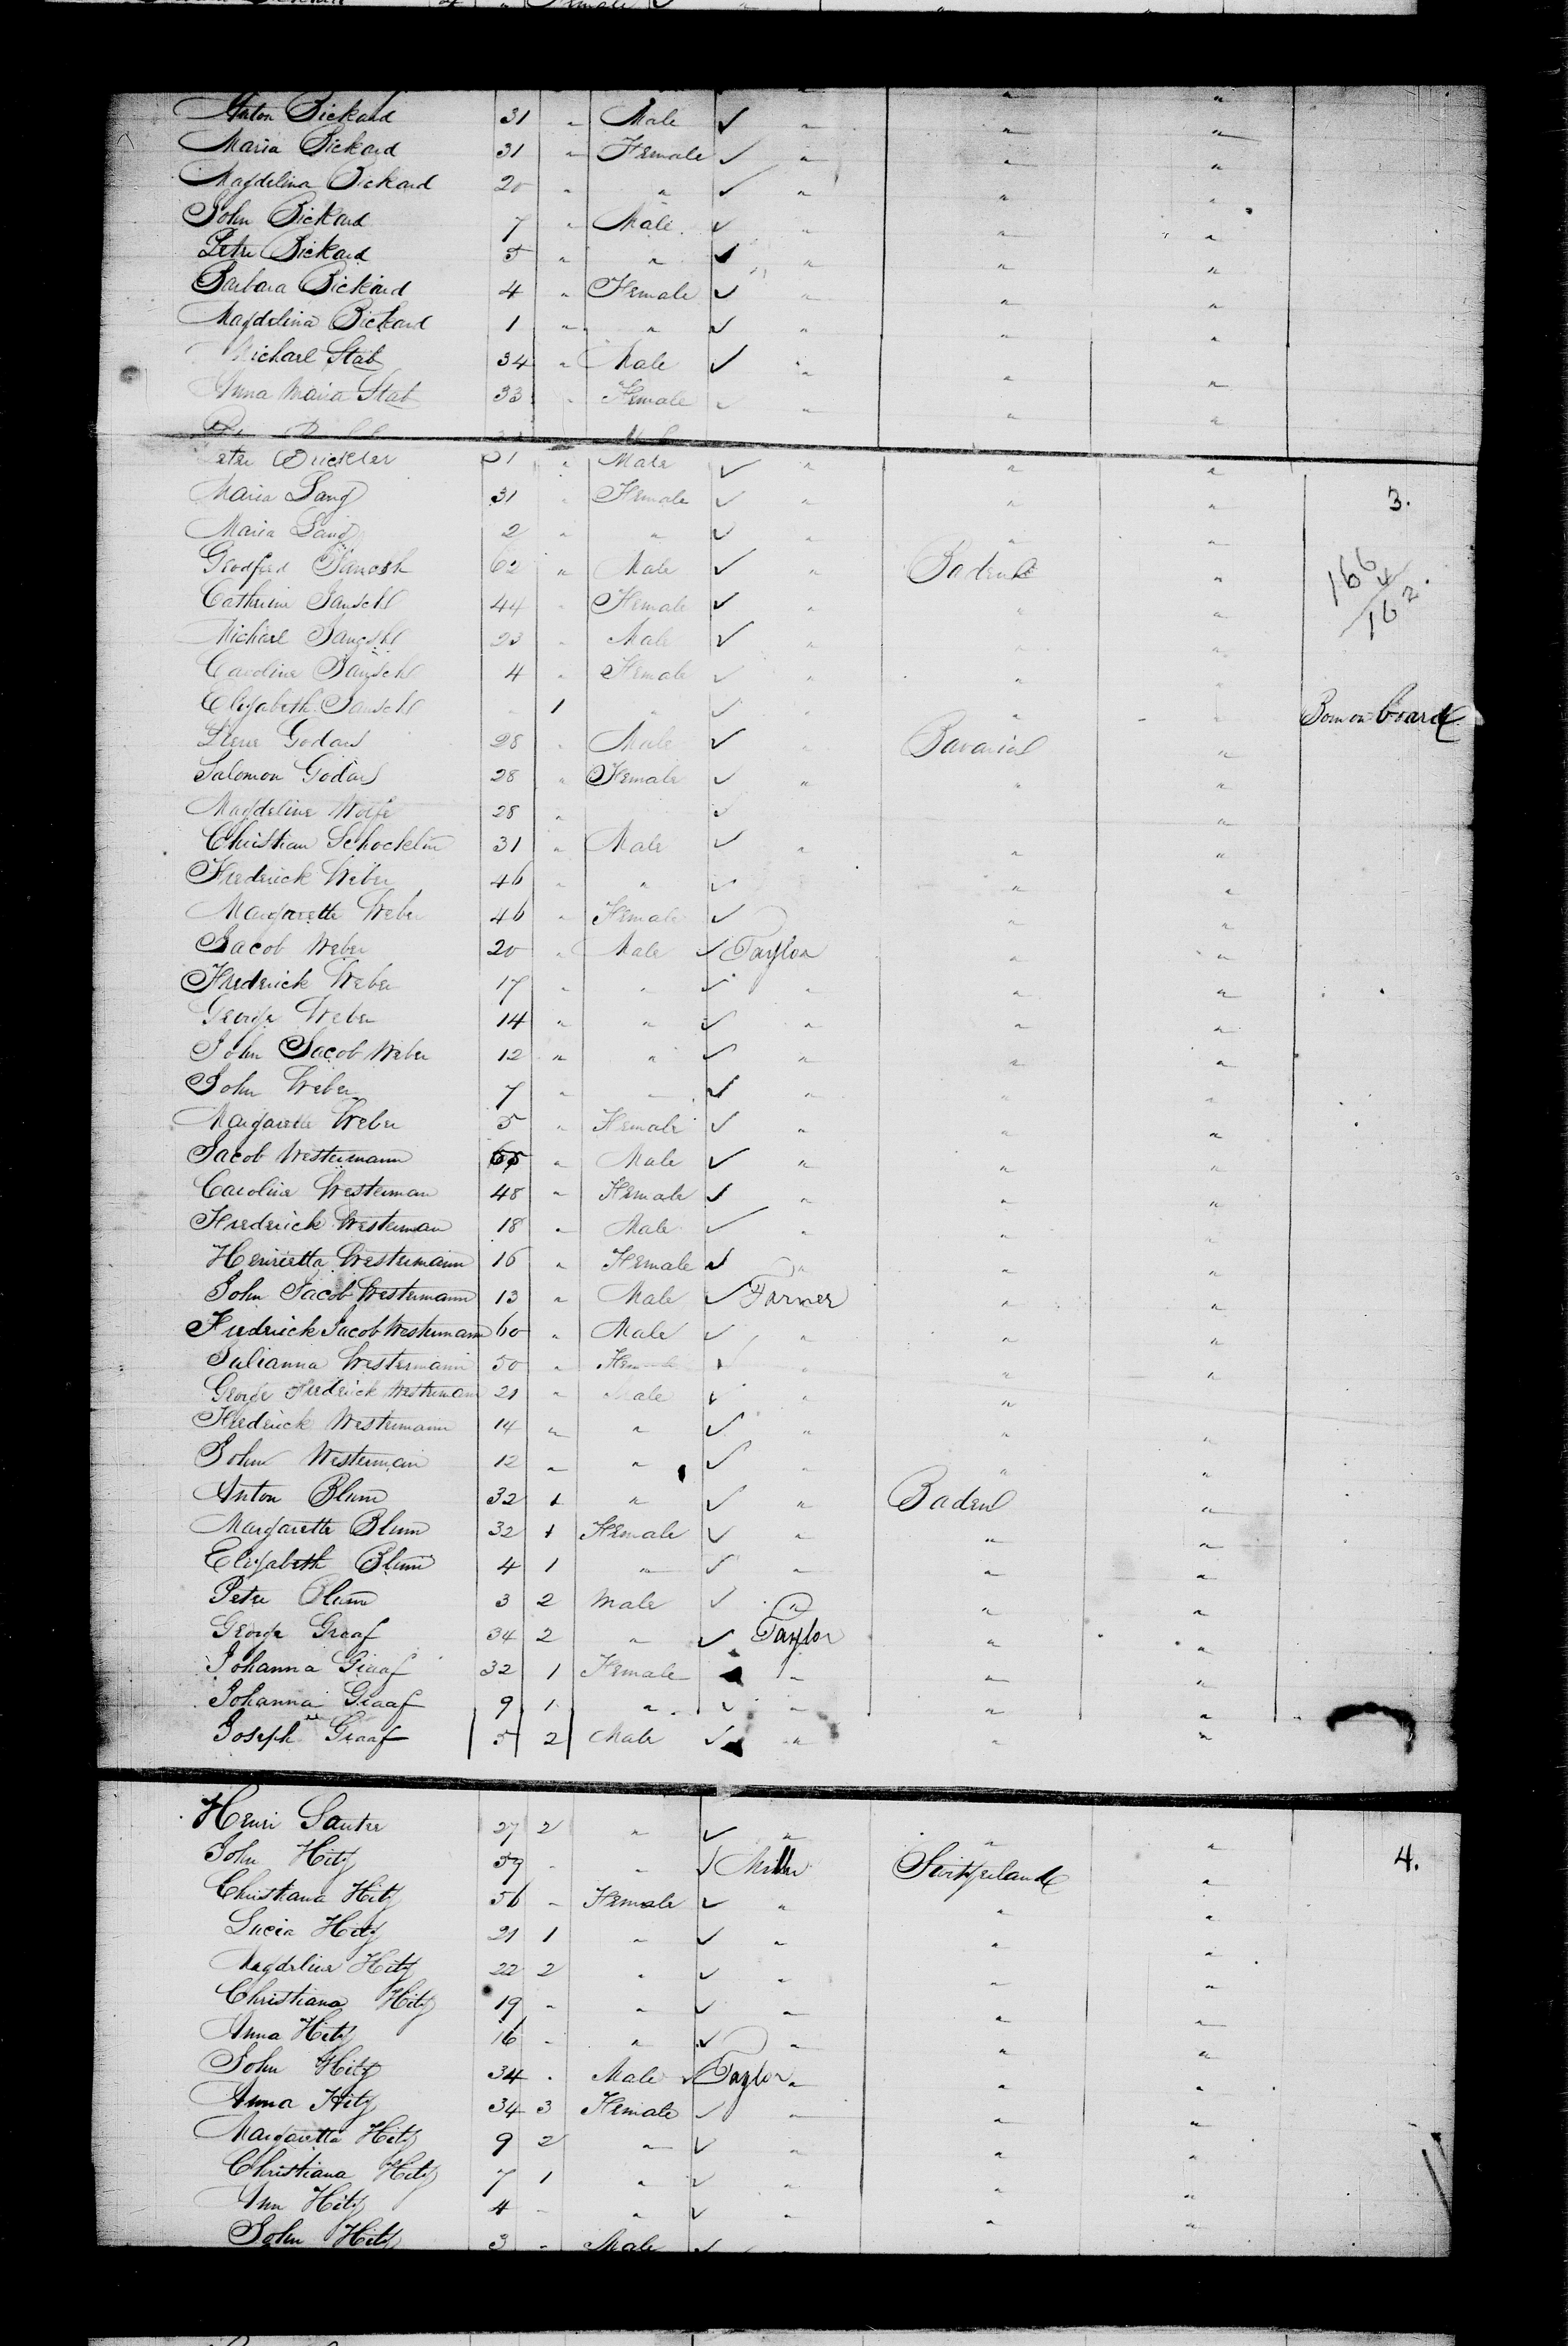 Female ✓
Anton Bickard 31 " Male ✓ " " "
Maria Bickard 31 " Female ✓ " " "
Magdelina Bickard 20 " " ✓ " " "
John Bickard 7 " Male ✓ " " "
Peter Bickard 5 " " ✓ " " "
Barbara Bickard 4 " Female ✓ " " "
Magdelina Bickard 1 " " ✓ " " "
Michael Stab 34 " Male ✓ " " "
Anna Maria Stab 33 " Female ✓ " " "
31 " Male ✓ " " "
Maria Lang 31 " Female ✓ " " " 3.
Maria Lang 2 " " ✓ " " "
62 " Male ✓ " Baden " 166
Cathrine 44 " Female ✓ " " 4
Michael 23 " Male ✓ " " 162.
Caroline 4 " Female ✓ " " "
Elizabeth " 1 " ✓ " " " Born on board
Godard 28 " Male ✓ " Bavaria "
Salomon Godard 28 " Female ✓ " " "
Magdeline Wolfe 28 " ✓ "
Christian Schocklin 31 " Male ✓ " " "
Frederick Weber 46 " " ✓ " "
Margarette Weber 46 " Female ✓ " "
Jacob Weber 20 " Male ✓ Taylor " "
Frederick Weber 17 " " ✓ " " "
George Weber 14 " " ✓ " " "
John Jacob Weber 12 " " ✓ " " "
John Weber 7 " " ✓ " " "
Margarette Weber 5 " Female ✓ " " "
Jacob Westermann " Male ✓ " " "
Caroline Westerman 48 " Female ✓ " " "
Frederick Westerman 18 " Male ✓ " " "
Henrietta Westermann 16 " Female ✓ " " "
John Jacob Westermann 13 " Male ✓ Farmer " "
Frederick Jacob Westermann 60 " Male ✓ " " "
Julianna Westermann 50 " Female ✓ " " "
George Frederick Westermann 21 " Male ✓ " "
Frederick Westermann 14 " " ✓ " " "
John Westerman 12 " " ✓ " " "
Anton Blum 32 1 " ✓ " Baden "
Margarette Blum 32 1 Female ✓ " " "
Elizabeth Blum 4 1 " ✓ " " "
Peter Blum 3 2 Male ✓ " " "
George Graaf 34 2 " ✓ Taylor " "
Johanna Graaf 32 1 Female " " "
Johanna Graaf 9 1 " ✓ " " "
Joseph Graaf 5 2 Male ✓ " " "
Henri Sauter 27 2 " ✓ " " "
John Hitz 59 " " ✓ Miller Switzerland " 4.
Christiana Hitz 56 " Female ✓ " " "
Lucia Hitz 21 1 " ✓ " " "
Magdeline Hitz 22 2 " ✓ " " "
Christiana Hitz 19 " " ✓ " " "
Anna Hitz 16 " " ✓ " " "
John Hitz 34 " Male ✓ Taylor " " "
Anna Hitz 34 3 Female ✓ " " "
Margaretta Hitz 9 2 " ✓ " " "
Christiana Hitz 7 1 " ✓ " " "
Ann Hitz 4 " " ✓ " " "
John Hitz 3 " Male ✓